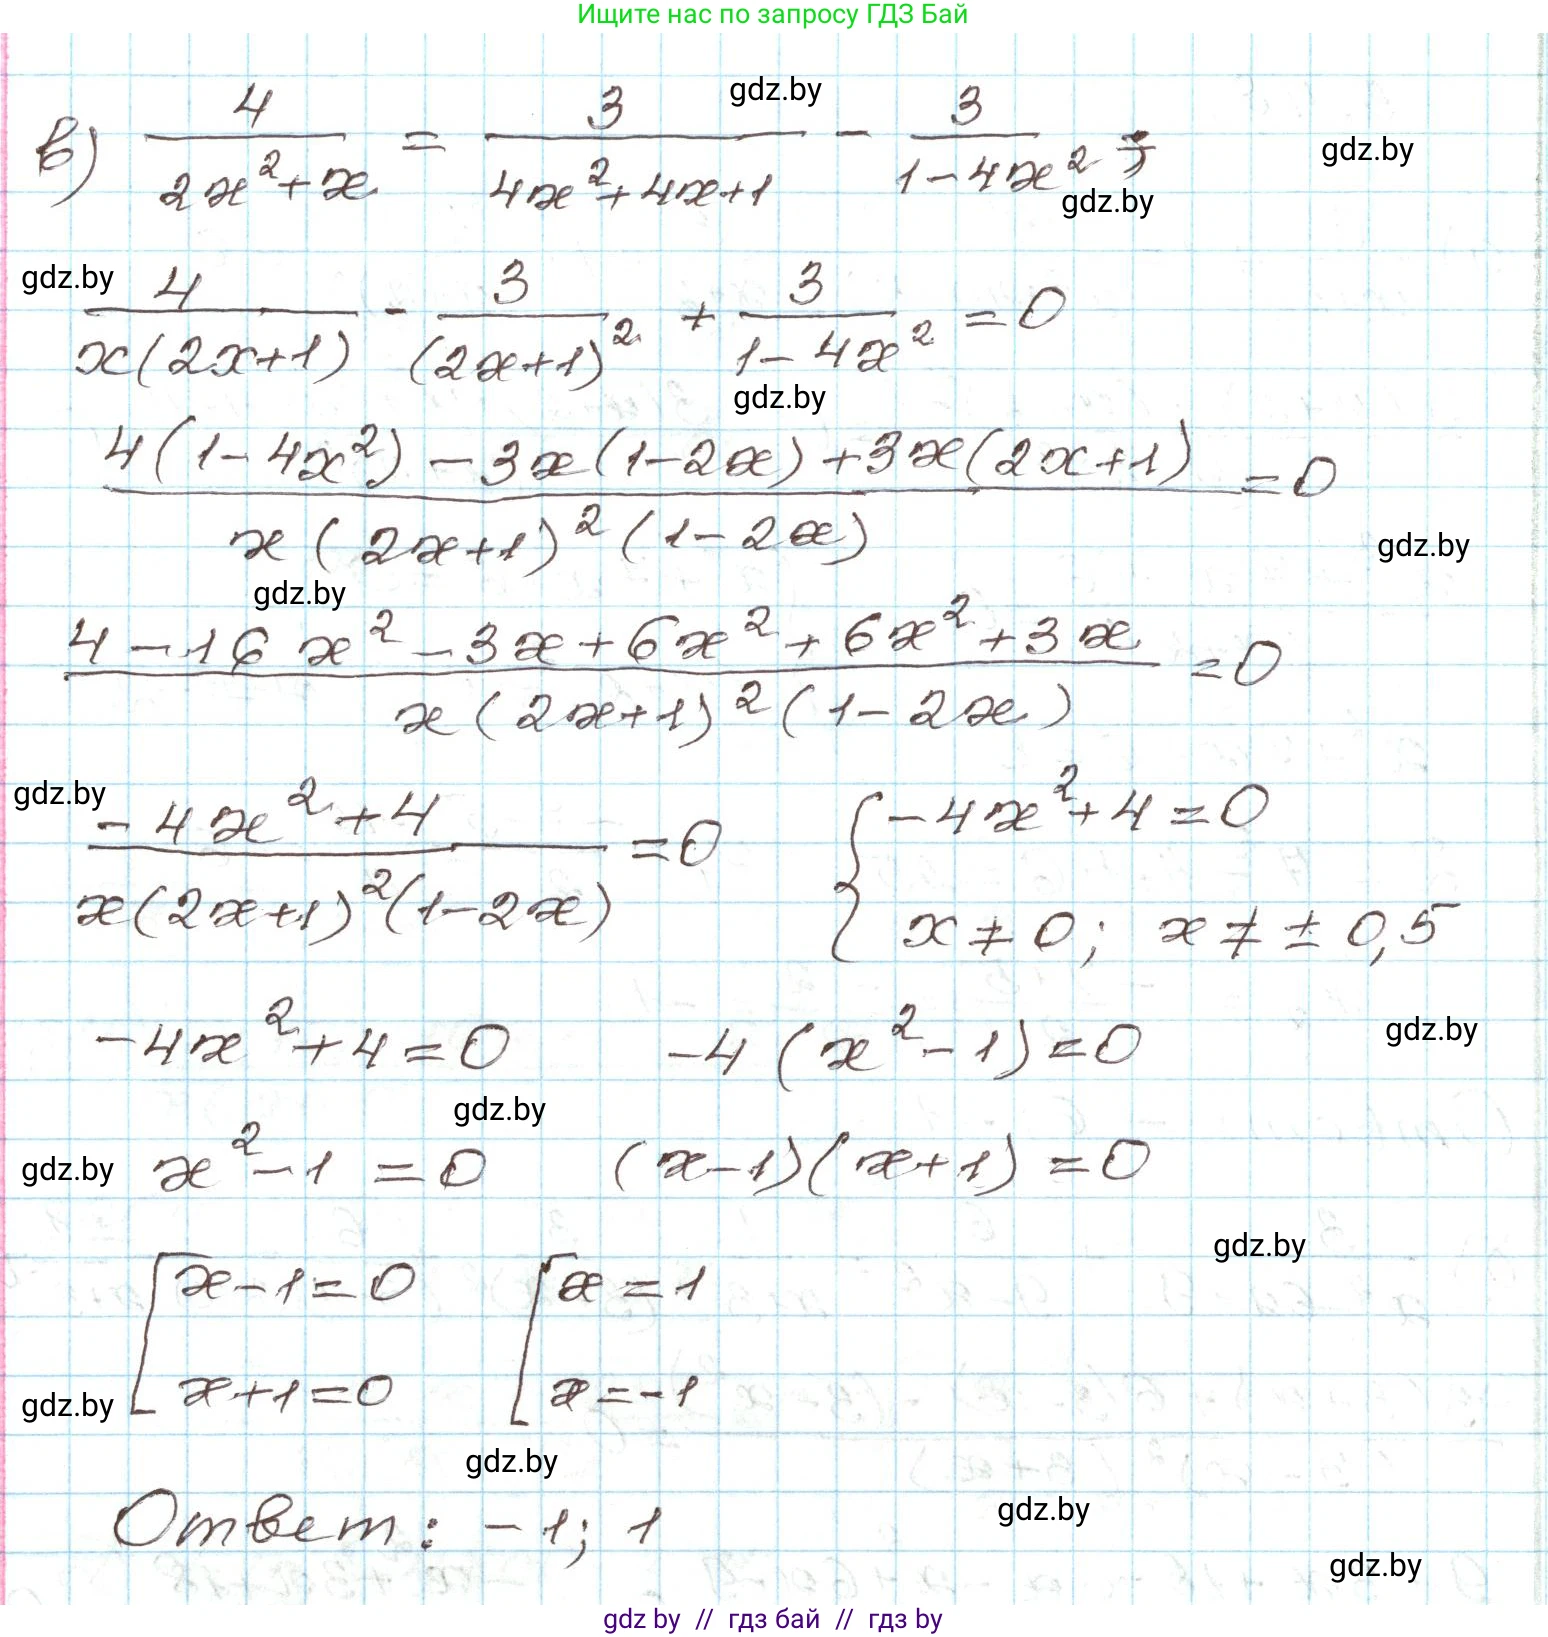 Ищите нас по запросу ГДЗ Бай
в) 4/(2x²+x) = 3/(4x²+4x+1) - 3/(1-4x²);
gdz.by
gdz.by
gdz.by
gdz.by
4/(x(2x+1)) - 3/(2x+1)² + 3/(1-4x²) = 0
gdz.by
(4(1-4x²) - 3x(1-2x) + 3x(2x+1))/(x(2x+1)²(1-2x)) = 0
gdz.by
gdz.by
(4-16x²-3x+6x²+6x²+3x)/(x(2x+1)²(1-2x)) = 0
gdz.by
(-4x²+4)/(x(2x+1)²(1-2x)) = 0 { -4x²+4=0
x≠0; x≠±0,5
-4x²+4=0 -4(x²-1)=0
gdz.by
gdz.by
gdz.by
x²-1=0 (x-1)(x+1)=0
gdz.by
[ x-1=0 [ x=1
gdz.by
x+1=0 x=-1
gdz.by
Ответ: -1; 1
gdz.by
gdz.by
gdz by // гдз бай // гдз by